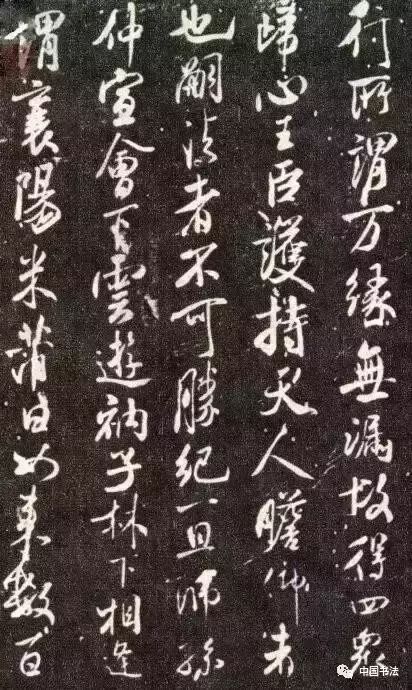 行所謂万緣無漏故得四衆
歸心王臣護持天人瞻仰者
也嗣法者不可勝紀一旦師孫
仲宣會下雲遊衲子林下相逢
謂襄陽米芾曰東數百
中国书法